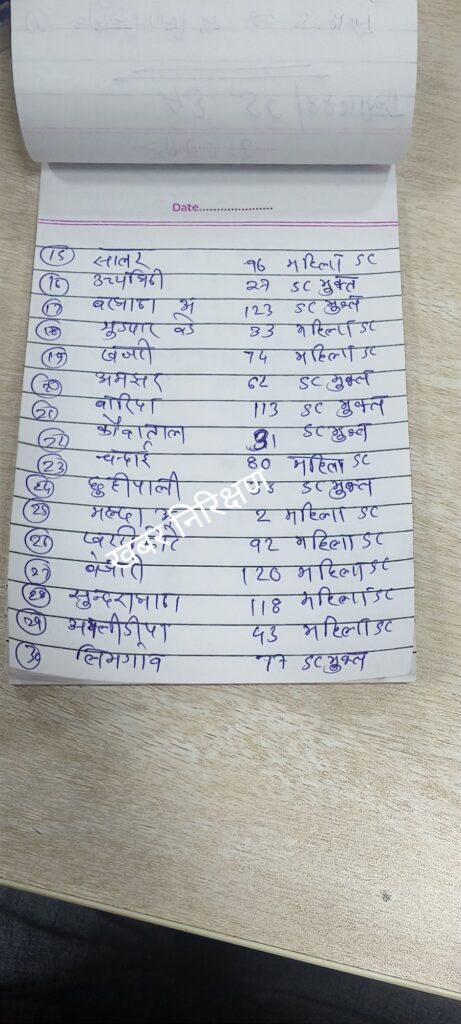 Date....................
15 सालर 96 महिला SC
16 उच्चभिठी 27 SC मुक्त
17 बरभाठा अ 123 SC मुक्त
18 मुड़पार बडे 33 महिला SC
19 खजरी 74 महिला SC
20 अमझर 62 SC मुक्त
21 बोरिदा 113 SC मुक्त
22 कौवाताल 31 SC मुक्त
23 चंवरई 80 महिला SC
24 छुहीपाली SC मुक्त
25 2 महिला SC
26 92 महिला SC
27 120 महिला SC
28 सुन्दराभाठा 118 महिला SC
29 भकलीडीपा 43 महिला SC
30 लिमगांव 77 SC मुक्त
खबर निरिक्षण